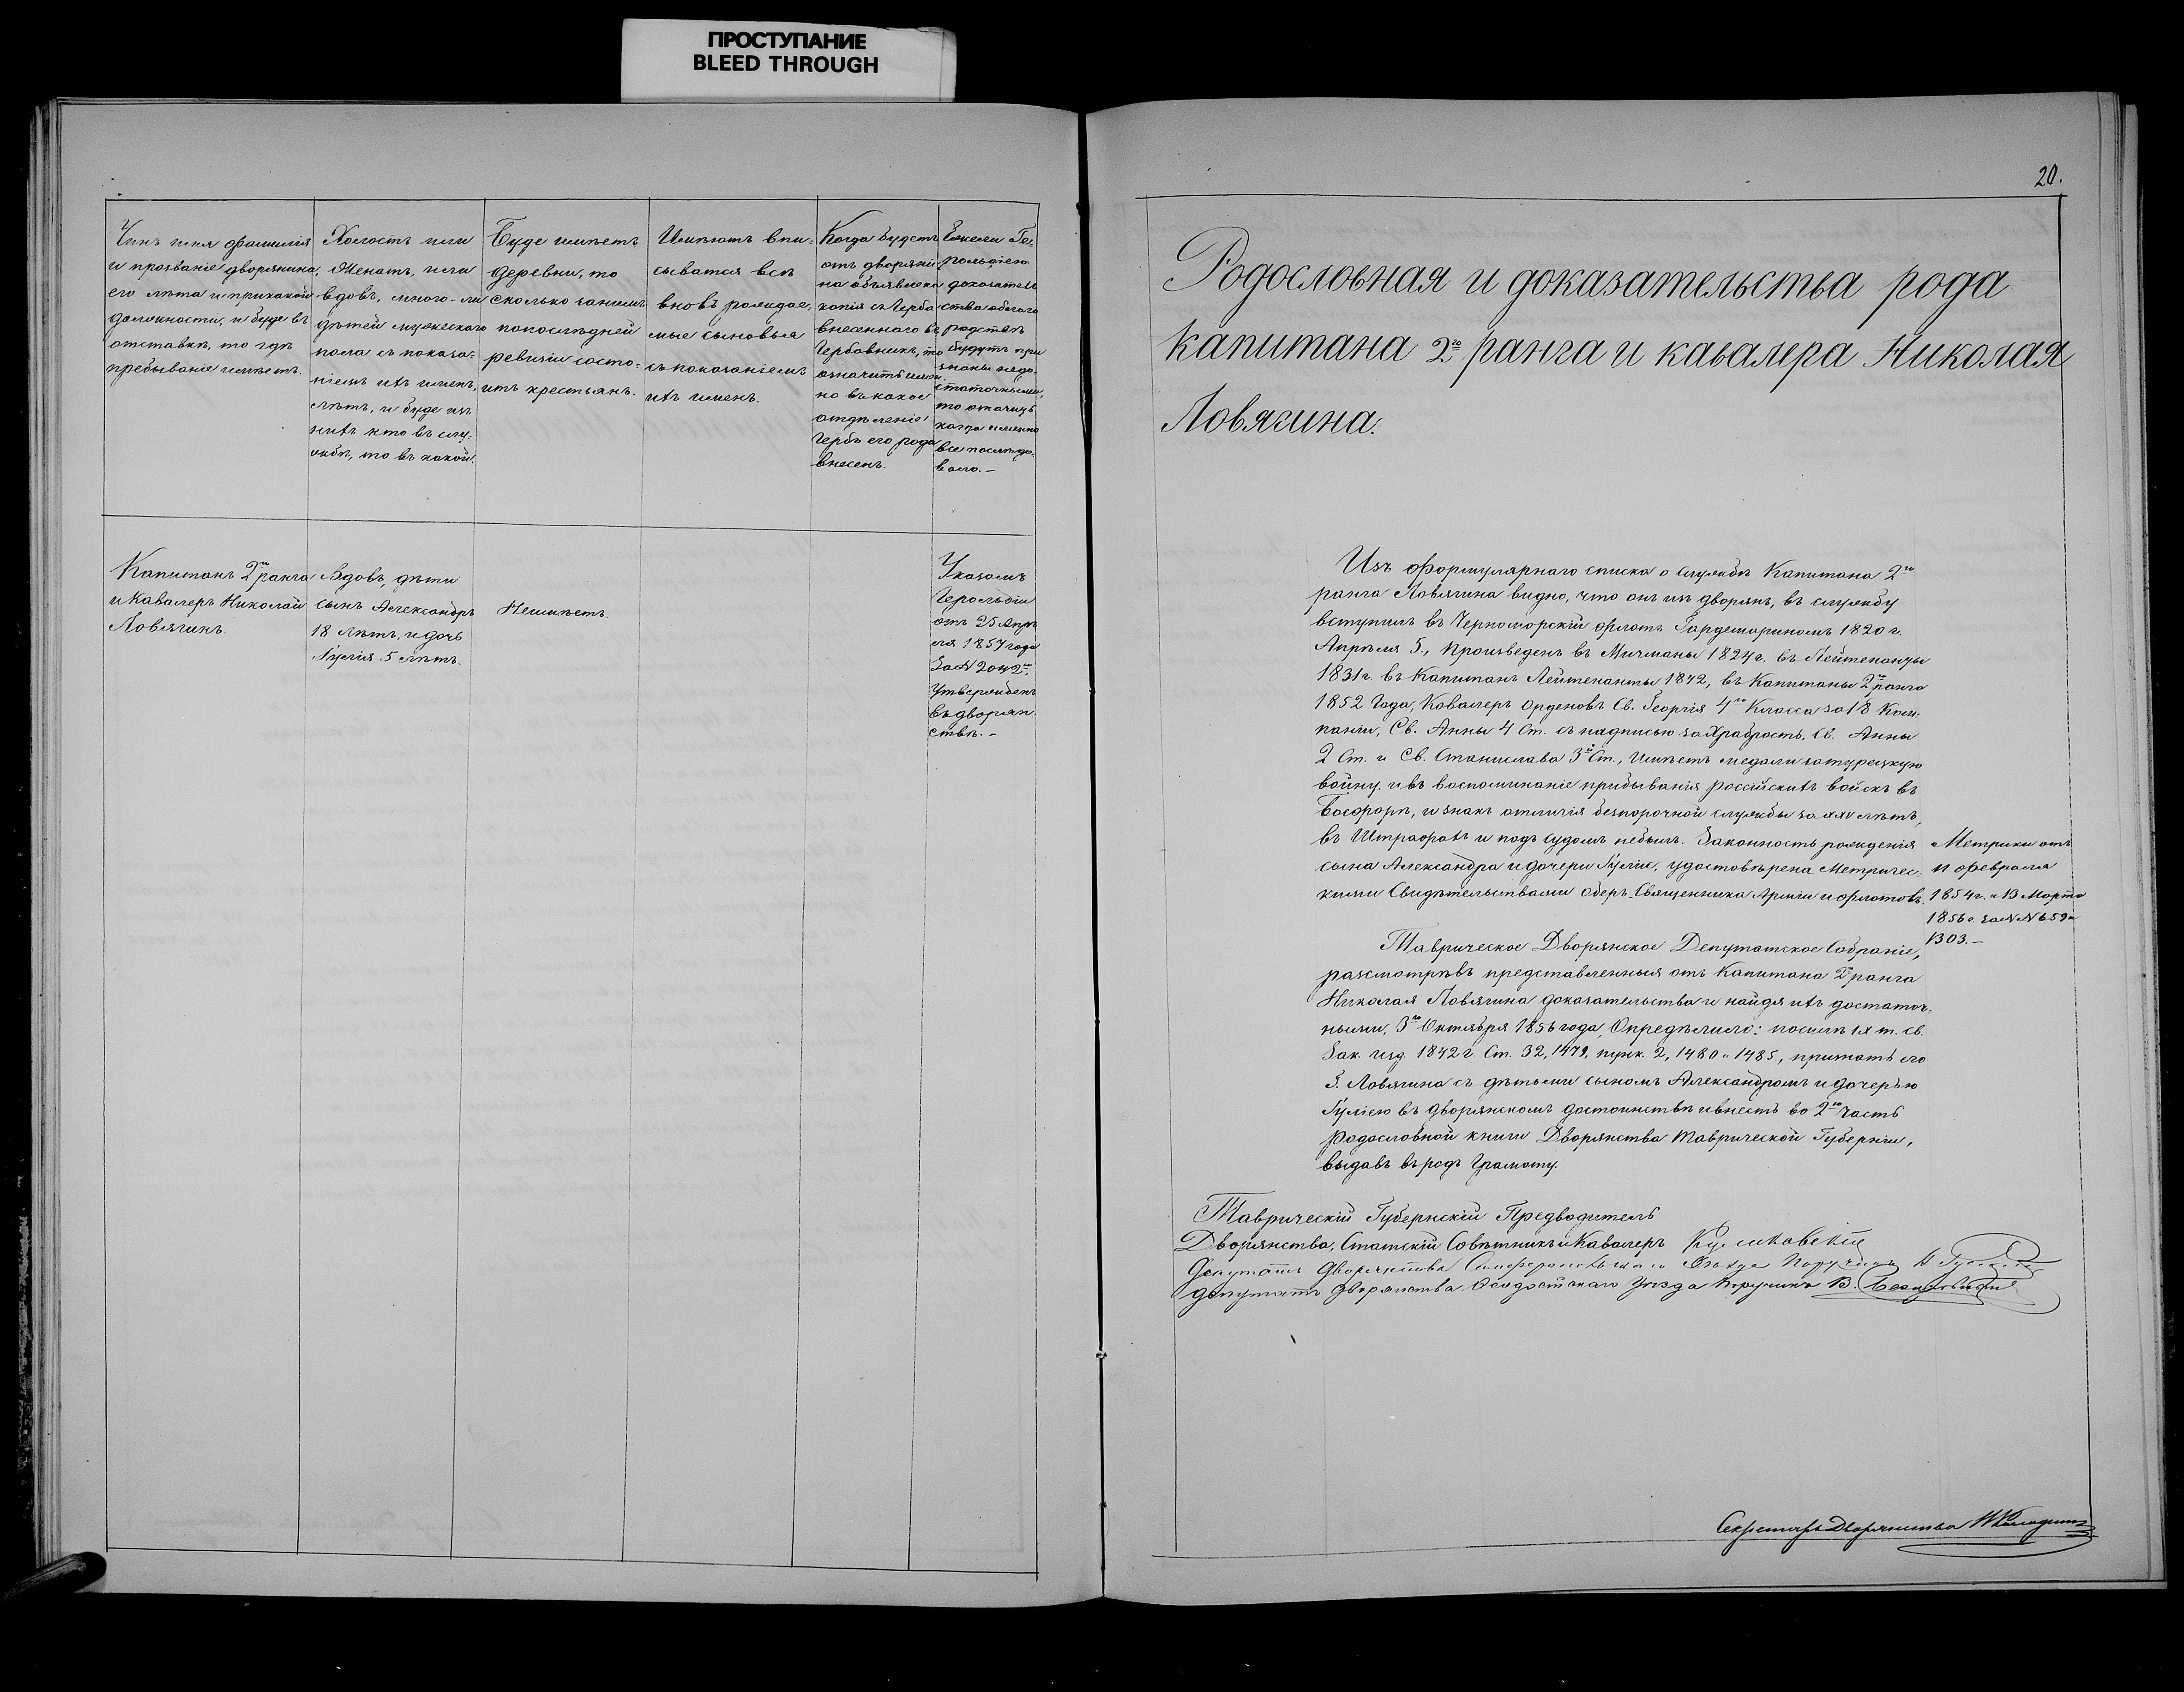 ПРОСТУПАНИЕ
BLEED THROUGH
Чинъ имя фамилія
и прозваніе дворянина,
его лѣта и при какой
должности, и буде въ
отставкѣ, то гдѣ
пребываніе имѣетъ.
Холостъ или
Женатъ, или
вдовъ, много-ли
дѣтей мужескаго
пола съ показа-
ніемъ ихъ именъ,
лѣтъ, и буде изъ
нихъ кто въ слу-
жбѣ, то въ какой.
Буде имѣетъ
деревни, то
сколько за нимъ
по послѣдней
ревизіи состо-
итъ крестьянъ.
Имѣютъ впи-
сыватся всѣ
вновь рождае-
мые сыновья
съ показаніемъ
ихъ именъ.
Когда будетъ
отъ дворяни
на объявлена
копія съ Герба
внесеннаго въ
Гербовникъ, то
означить имен
но въ какое
отдѣленіе
Гербъ его рода
внесенъ.
Ежели Ге-
рольдіею
доказатель
ства о благо
родствѣ
будутъ при
знаны недо-
статочными,
то отмѣтить
когда именно
все послѣдо-
вало.-
Капитанъ 2го ранга
и Кавалеръ Николай
Ловягинъ.
Вдовъ, дѣти
сынъ Александръ
18 лѣтъ, и дочь
Юлія 5 лѣтъ.
Неимѣетъ.
Указомъ
Герольдіи
отъ 25 Апрѣ
ля 1857 года
За N 2042м,
Утвержденъ
въ дворян-
ствѣ.-
20.
Родословная и доказательства рода
капитана 2го ранга и кавалера Николая
Ловягина.
Изъ Формулярнаго списка о службѣ Капитана 2го
ранга Ловягина видно, что онъ изъ дворянъ, въ службу
вступилъ въ Черноморскій флотъ Гардемариномъ 1820 г.
Апрѣля 5, Произведенъ въ Мичманы 1824 г. въ Лейтенанты
1831 г. въ Капитанъ Лейтенанты 1842, въ Капитаны 2го ранга
1852 Года, Кавалеръ Орденовъ Св. Георгія 4го Класса за 18 Кам-
паніи, Св. Анны 4 Ст. съ надписью за Храбрость, Св. Анны
2 Ст. и Св. Станислава 3й Ст., Имѣетъ медали за турецкую
войну, и въ воспоминаніе прибыванія россійскихъ войскъ въ
Босфорѣ, и знакъ отличія безпорочной службы за XXV лѣтъ,
въ Штрафахъ и подъ судомъ небылъ. Законность рожденія
сына Александра и дочери Юліи, удостовѣрена Метричес-
кими Свидѣтельствами Оберъ-Священника Арміи и флотовъ.
Метрики отъ
11 Февраля
1854 г. и 13 Марта
1856 г. за N N 659 и
1303.-
Таврическое Дворянское Депутатское Собраніе,
разсмотрѣвъ представленныя отъ Капитана 2го ранга
Николая Ловягина доказательства и найдя ихъ достаточ-
ными, 3го Октября 1856 года, Опредѣлило: посилѣ IX т. Св.
Зак. изд. 1842 г. Ст. 32, 1479, пунк. 2, 1480 и 1485, признать его
Г. Ловягина съ дѣтьми сыномъ Александромъ и дочерью
Юліею въ дворянскомъ достоинствѣ и внесть во 2ю Часть
родословной книги Дворянства Таврической Губерніи,
выдавъ въ родъ Грамоту.
Таврическій Губернскій Предводитель
Дворянства, Статскій Совѣтникъ и Кавалеръ
Депутатъ Дворянства Симферопольскаго Уѣзда Поручикъ
Депутатъ Дворянства Ѳеодосійскаго Уѣзда Поручикъ В.
Секретарь Дворянства